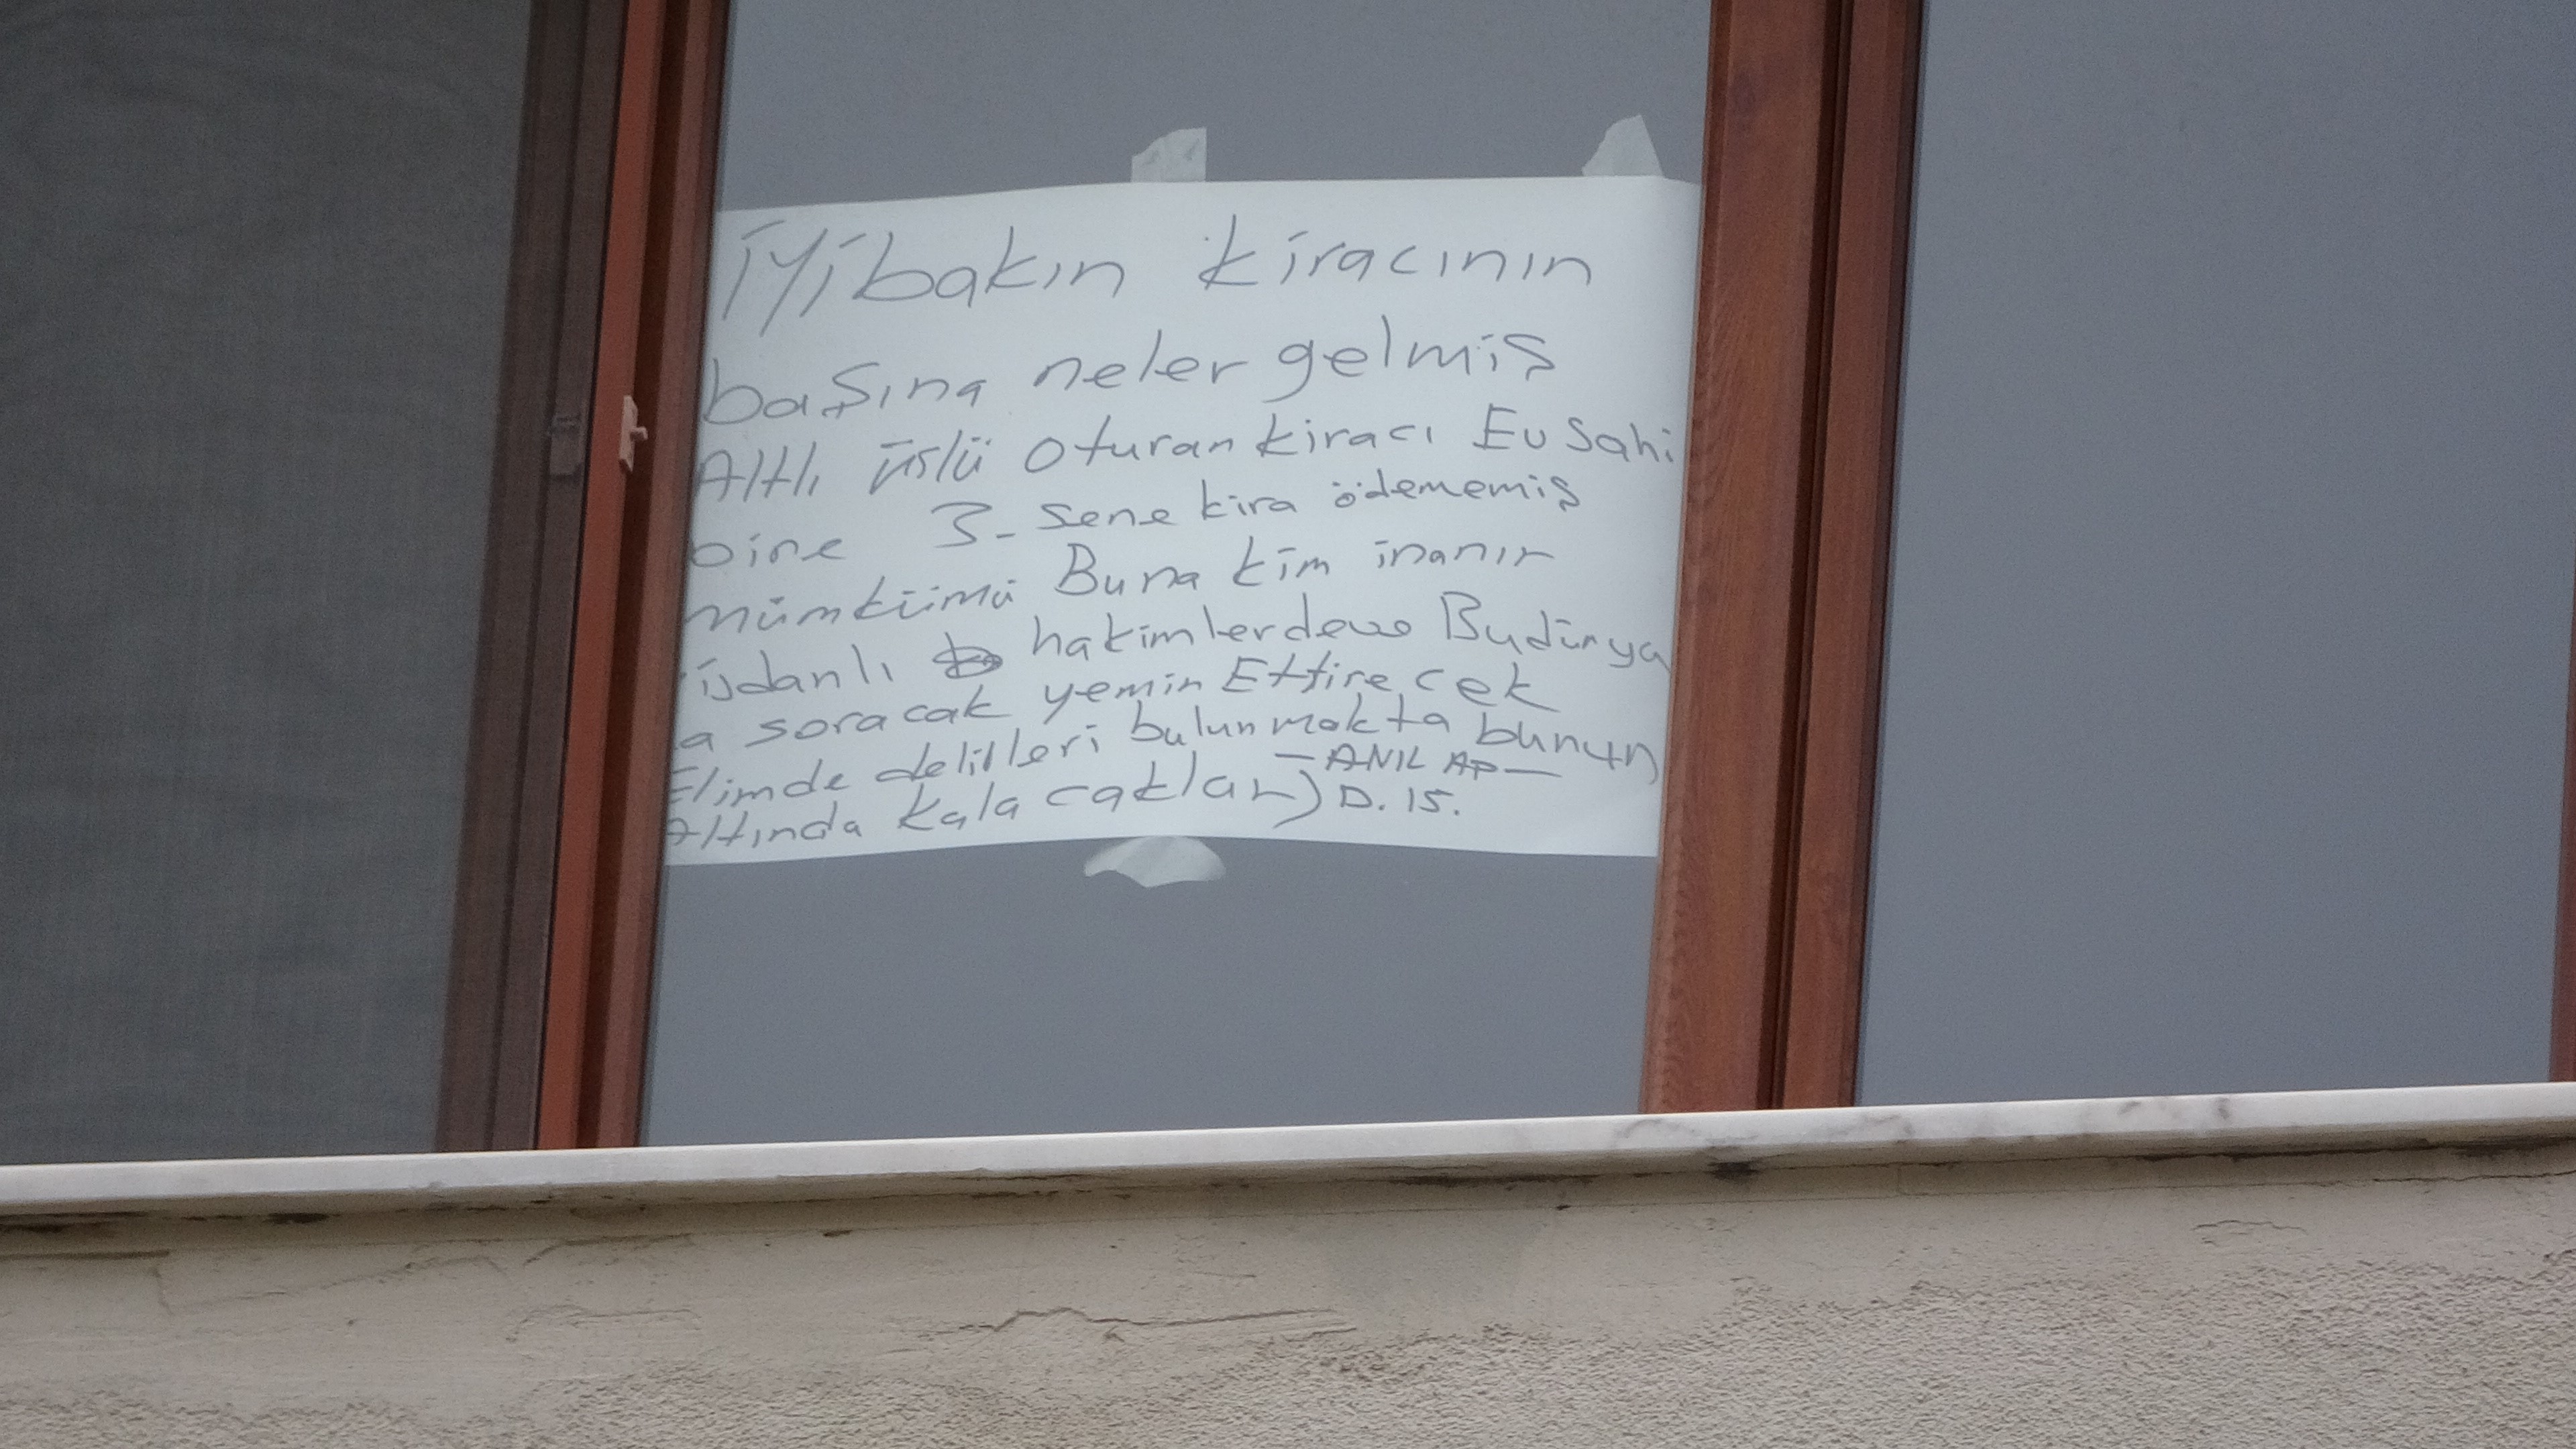 iyi bakın kiracının
başına neler gelmiş
Altlı üslü oturan kiracı Ev sahi
bine 3- sene kira ödememiş
mümkümü Buna kim inanır
hakimlerde Budünya
soracak yemin Ettirecek
Elimde delilleri bulunmakta bunun
Altında kalacaklar
-ANIL AP-
D. 15.